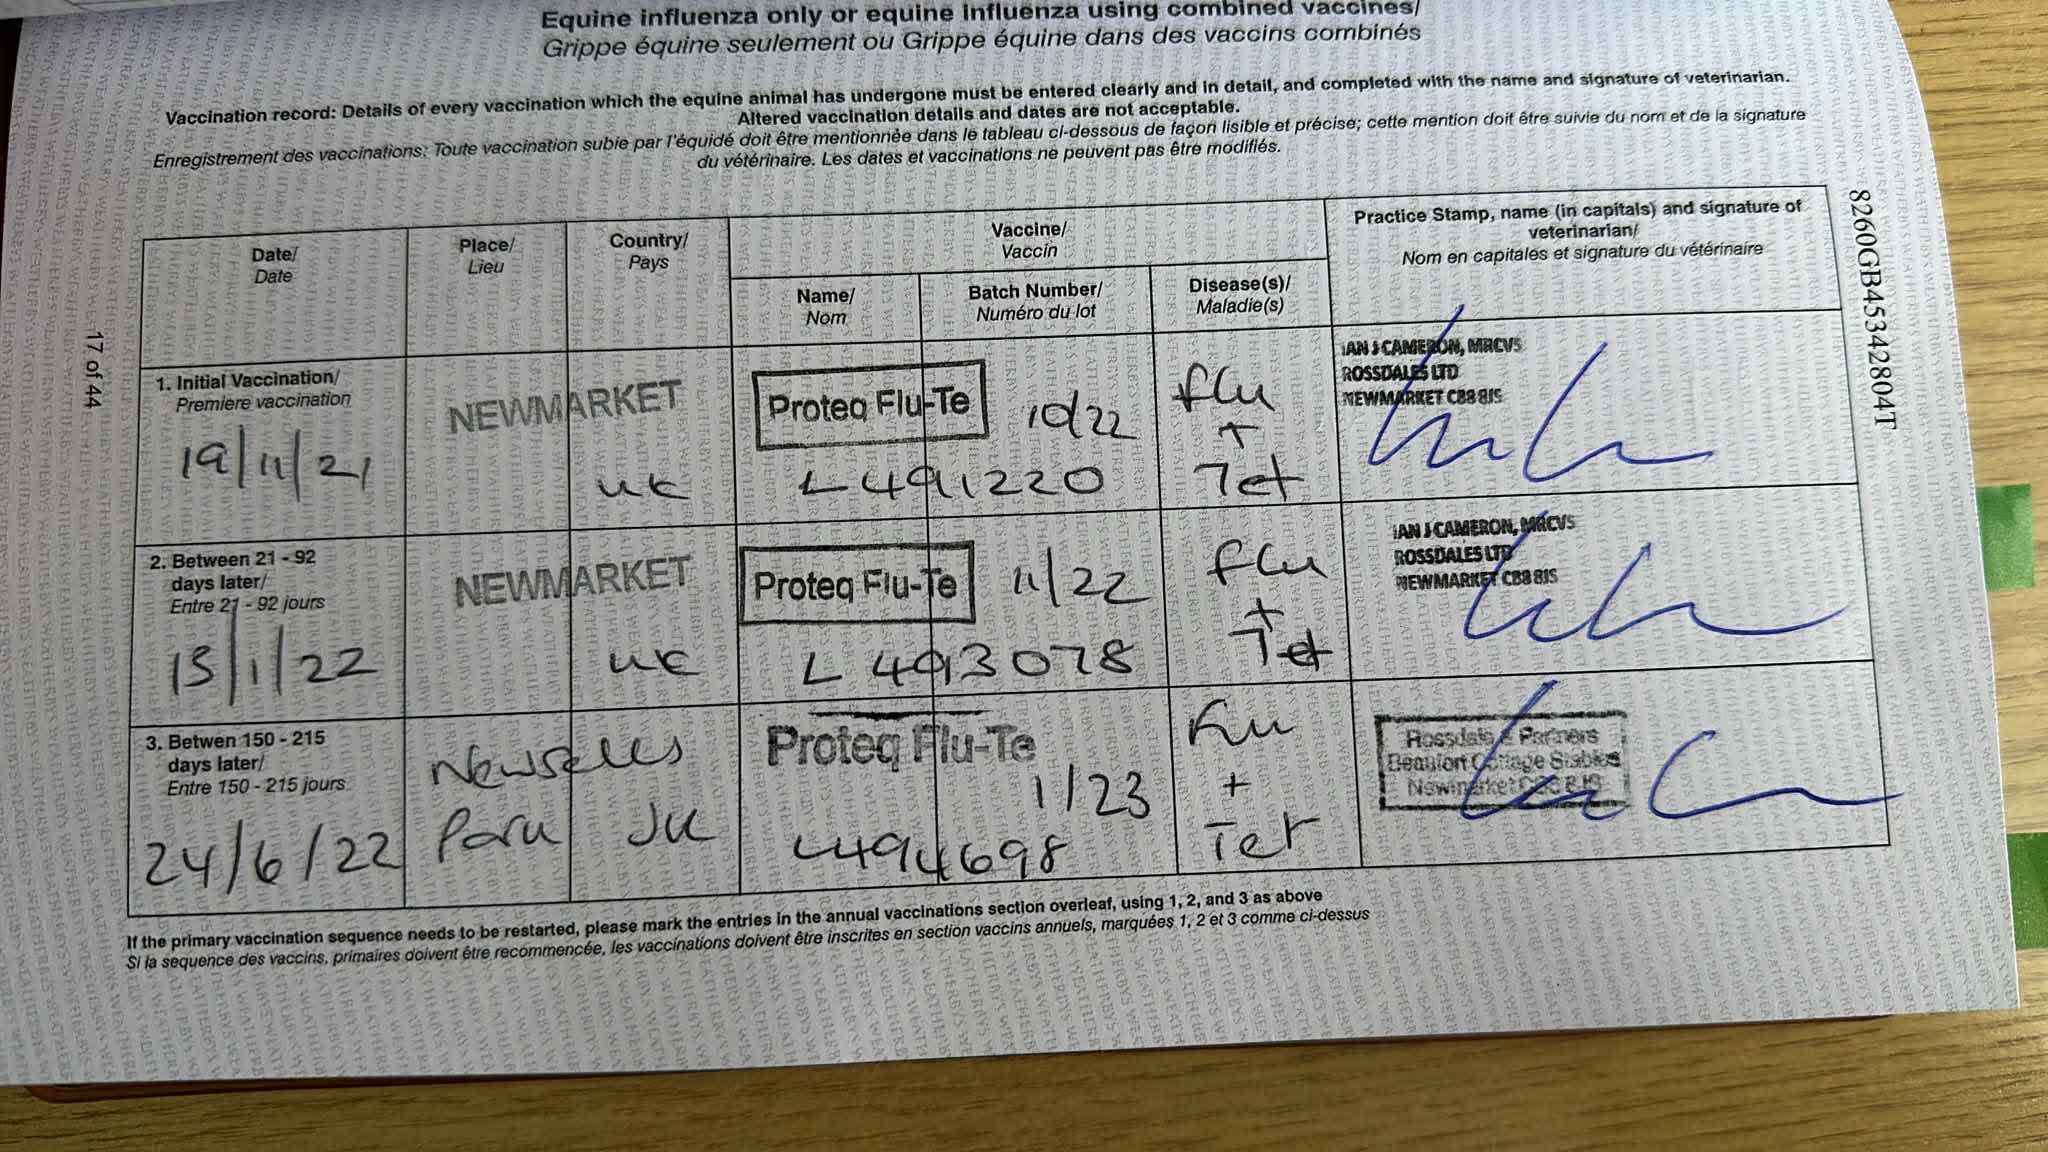 Equine influenza only or equine influenza using combined vaccines/
Grippe équine seulement ou Grippe équine dans des vaccins combinés
Vaccination record: Details of every vaccination which the equine animal has undergone must be entered clearly and in detail, and completed with the name and signature of veterinarian.
Altered vaccination details and dates are not acceptable.
Enregistrement des vaccinations: Toute vaccination subie par l'équidé doit être mentionnée dans le tableau ci-dessous de façon lisible et précise; cette mention doit être suivie du nom et de la signature
du vétérinaire. Les dates et vaccinations ne peuvent pas être modifiés.
8260GB45342804T
17 of 44
Date/
Date
Place/
Lieu
Country/
Pays
Vaccine/
Vaccin
Name/
Nom
Batch Number/
Numéro du lot
Disease(s)/
Maladie(s)
Practice Stamp, name (in capitals) and signature of
veterinarian/
Nom en capitales et signature du vétérinaire
1. Initial Vaccination/
Premiere vaccination
19/11/21
NEWMARKET
UK
Proteq Flu-Te
10/22
L491220
Flu
+
Tet
IAN J CAMERON, MRCVS
ROSSDALES LTD
NEWMARKET CB8 8JS
2. Between 21 - 92
days later/
Entre 21 - 92 jours
15/1/22
NEWMARKET
UK
Proteq Flu-Te
11/22
L493078
Flu
+
Tet
IAN J CAMERON, MRCVS
ROSSDALES LTD
NEWMARKET CB8 8JS
3. Betwen 150 - 215
days later/
Entre 150 - 215 jours
24/6/22
Newsells
Park
UK
Proteq Flu-Te
1/23
L494698
Flu
+
Tet
Rossdale & Partners
Beaufort Cottage Stables
Newmarket CB8 8JS
If the primary vaccination sequence needs to be restarted, please mark the entries in the annual vaccinations section overleaf, using 1, 2, and 3 as above
Si la sequence des vaccins, primaires doivent être recommencée, les vaccinations doivent être inscrites en section vaccins annuels, marquées 1, 2 et 3 comme ci-dessus